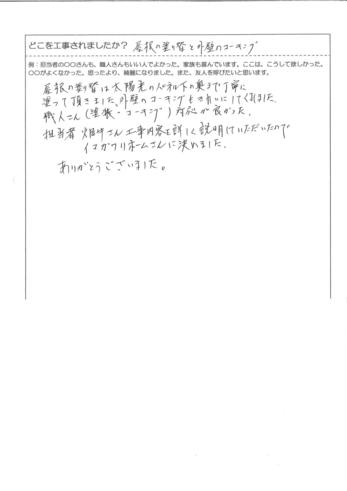 どこを工事されましたか？ 屋根の塗り替と外壁のコーキング
例：担当者の〇〇さんも、職人さんもいい人でよかった。家族も喜んでいます。ここは、こうして欲しかった。
〇〇がよくなかった。思ったより、綺麗になりました。また、友人を呼びたいと思います。
屋根の塗り替は太陽光のパネル下の奥まで丁寧に
塗って頂きました。外壁のコーキングもきれいにしてくれました。
職人さん（塗装・コーキング）対応が良かった。
担当者 畑中さん工事内容を詳しく説明していただいたので
ホームさんに決めました。
ありがとうございました。